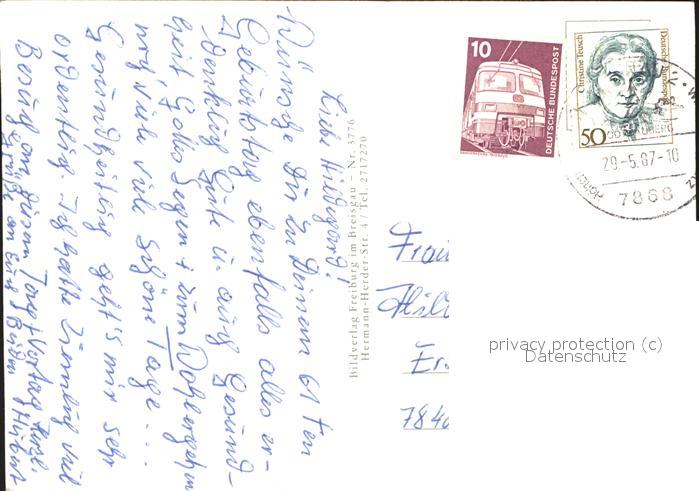 Liebe Hildegard!
Wünsche Dir zu Deinem 61 ten
Geburtstag ebenfalls alles er-
denklich Gute u. auch Gesund-
heit Gottes Segen + zum Wohlergehen
noch viele viele schöne Tage...
Gesundheitlich geht's mir sehr
ordentlich. Ich hatte ziemlich viel
Besuch an diesem Tag + Vortag. Herzl.
Grüße an Euch Beiden
Bildverlag Freiburg im Breisgau – Nr. 3776
Hermann-Herder-Str. 4 / Tel. 2717270
10
DEUTSCHE BUNDESPOST
Christine Teusch
Deutsche Bundespost
50
29.-5.87-10
7868
Frau
Hil
7840
privacy protection (c)
Datenschutz